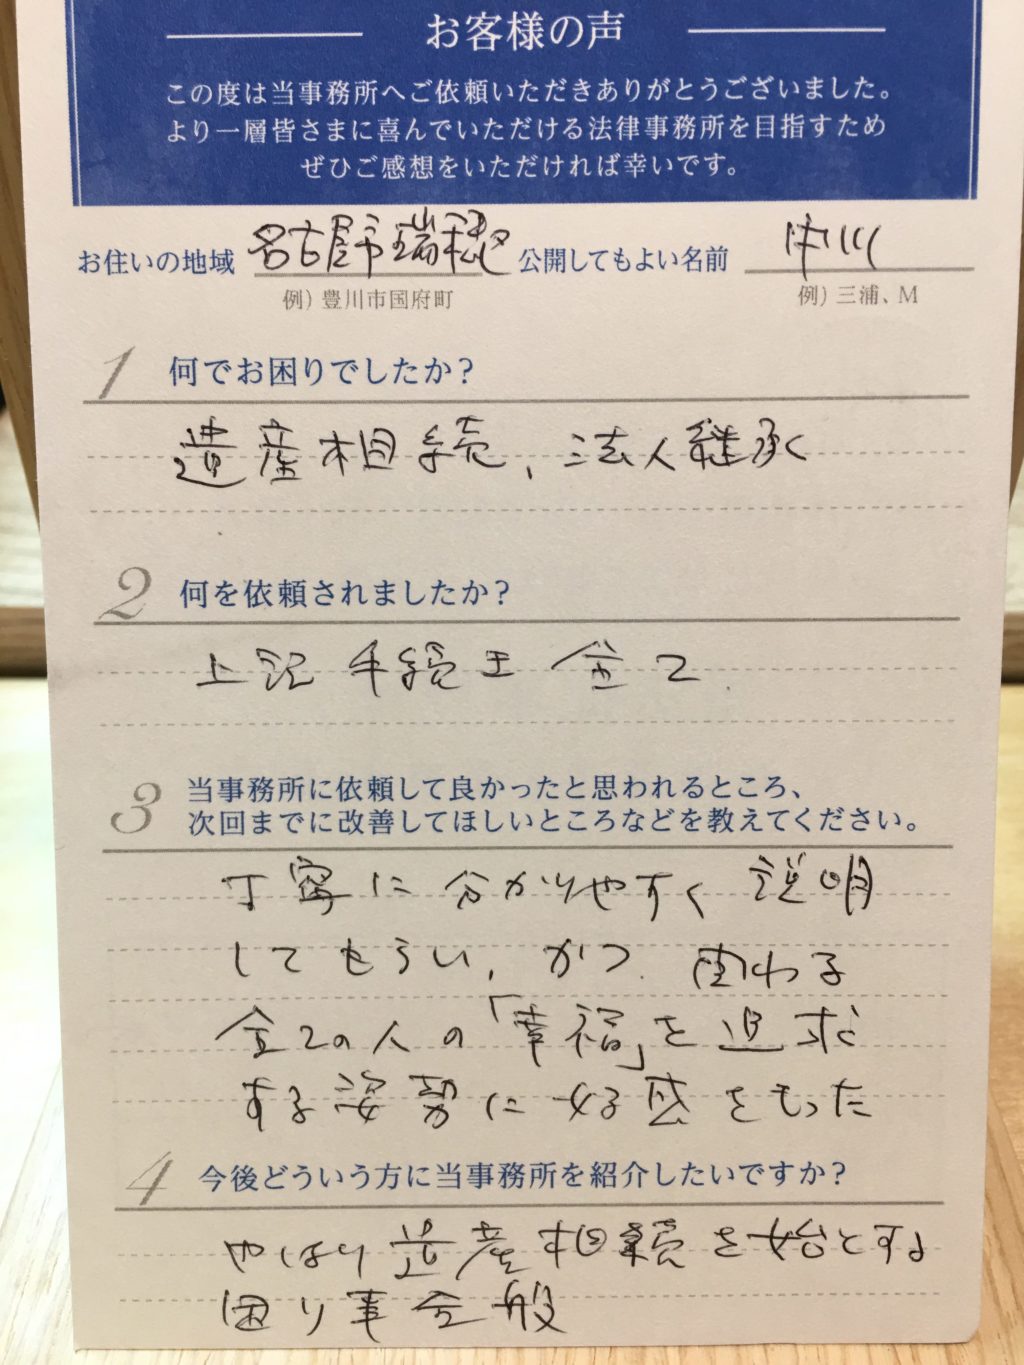 お客様の声
この度は当事務所へご依頼いただきありがとうございました。
より一層皆さまに喜んでいただける法律事務所を目指すため
ぜひご感想をいただければ幸いです。
お住いの地域 名古屋市瑞穂区 公開してもよい名前 中川
例）豊川市国府町 例）三浦、M
1 何でお困りでしたか？
遺産相続、法人継承
2 何を依頼されましたか？
上記手続き全て.
3 当事務所に依頼して良かったと思われるところ、
次回までに改善してほしいところなどを教えてください。
丁寧に分かりやすく説明
してもらい、かつ、関わる
全ての人の「幸福」を追求
する姿勢に好感をもった
4 今後どういう方に当事務所を紹介したいですか？
やはり遺産相続を始とする
困り事全般